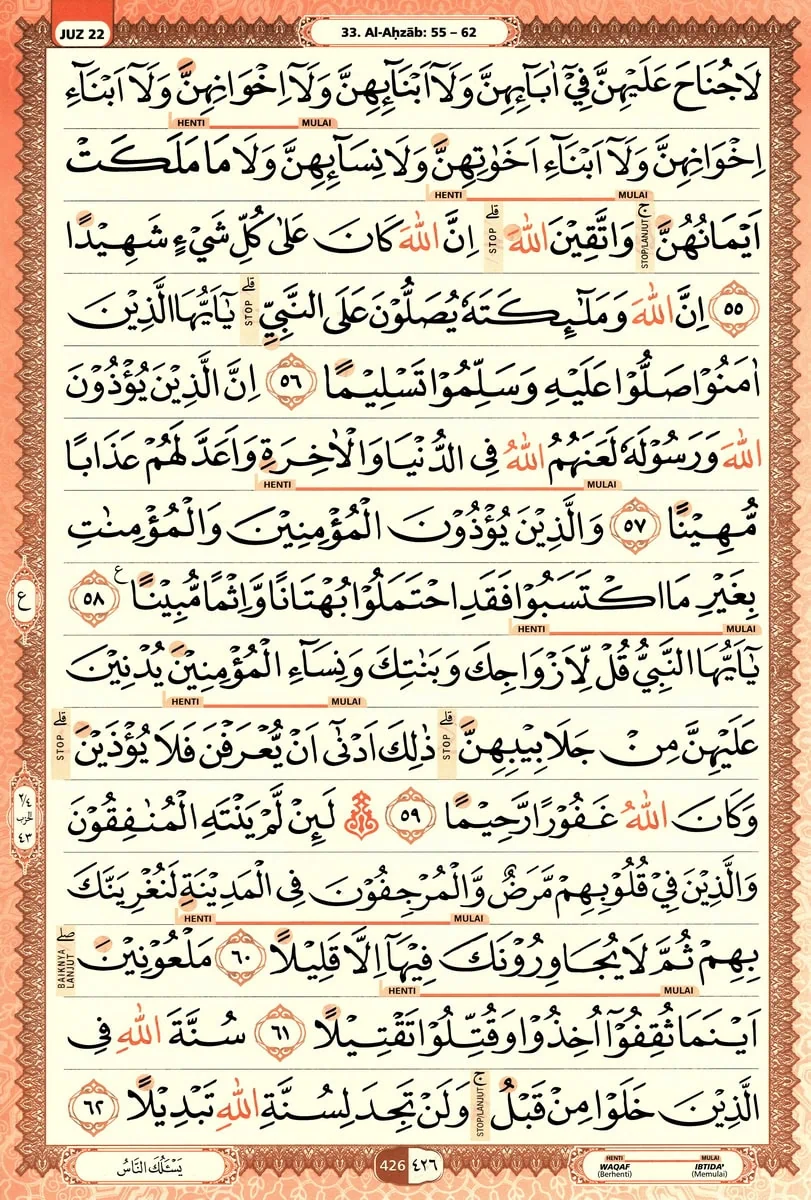 JUZ 22
33. Al-Aḥzāb: 55 – 62
لَا جُنَاحَ عَلَيْهِنَّ فِيْٓ اٰبَاۤىِٕهِنَّ وَلَآ اَبْنَاۤىِٕهِنَّ وَلَآ اِخْوَانِهِنَّ وَلَآ اَبْنَاۤءِ
HENTI MULAI
اِخْوَانِهِنَّ وَلَآ اَبْنَاۤءِ اَخَوٰتِهِنَّ وَلَا نِسَاۤىِٕهِنَّ وَلَا مَا مَلَكَتْ
HENTI MULAI
اَيْمَانُهُنَّۚ وَاتَّقِيْنَ اللّٰهَ ۗاِنَّ اللّٰهَ كَانَ عَلٰى كُلِّ شَيْءٍ شَهِيْدًا
STOP/LANJUT STOP
٥٥ اِنَّ اللّٰهَ وَمَلٰۤىِٕكَتَهٗ يُصَلُّوْنَ عَلَى النَّبِيِّۗ يٰٓاَيُّهَا الَّذِيْنَ
STOP
اٰمَنُوْا صَلُّوْا عَلَيْهِ وَسَلِّمُوْا تَسْلِيْمًا ٥٦ اِنَّ الَّذِيْنَ يُؤْذُوْنَ
اللّٰهَ وَرَسُوْلَهٗ لَعَنَهُمُ اللّٰهُ فِى الدُّنْيَا وَالْاٰخِرَةِ وَاَعَدَّ لَهُمْ عَذَابًا
HENTI MULAI
مُّهِيْنًا ٥٧ وَالَّذِيْنَ يُؤْذُوْنَ الْمُؤْمِنِيْنَ وَالْمُؤْمِنٰتِ
بِغَيْرِ مَا اكْتَسَبُوْا فَقَدِ احْتَمَلُوْا بُهْتَانًا وَّاِثْمًا مُّبِيْنًا ع ٥٨
ع
HENTI MULAI
يٰٓاَيُّهَا النَّبِيُّ قُلْ لِّاَزْوَاجِكَ وَبَنٰتِكَ وَنِسَاۤءِ الْمُؤْمِنِيْنَ يُدْنِيْنَ
HENTI MULAI
عَلَيْهِنَّ مِنْ جَلَابِيْبِهِنَّۗ ذٰلِكَ اَدْنٰٓى اَنْ يُّعْرَفْنَ فَلَا يُؤْذَيْنَۗ
STOP STOP
وَكَانَ اللّٰهُ غَفُوْرًا رَّحِيْمًا ٥٩ ۞ لَىِٕنْ لَّمْ يَنْتَهِ الْمُنٰفِقُوْنَ
٢/٤
الحزب
٤٣
وَالَّذِيْنَ فِيْ قُلُوْبِهِمْ مَّرَضٌ وَّالْمُرْجِفُوْنَ فِى الْمَدِيْنَةِ لَنُغْرِيَنَّكَ
HENTI MULAI
بِهِمْ ثُمَّ لَا يُجَاوِرُوْنَكَ فِيْهَآ اِلَّا قَلِيْلًا ٦٠ مَلْعُوْنِيْنَۖ
BAIKNYA LANJUT
HENTI MULAI
اَيْنَمَا ثُقِفُوْٓا اُخِذُوْا وَقُتِّلُوْا تَقْتِيْلًا ٦١ سُنَّةَ اللّٰهِ فِى
الَّذِيْنَ خَلَوْا مِنْ قَبْلُۚ وَلَنْ تَجِدَ لِسُنَّةِ اللّٰهِ تَبْدِيْلًا ٦٢
STOP/LANJUT
يَسْـَٔلُكَ النَّاسُ
426 ٤٢٦
HENTI WAQAF (Berhenti)
MULAI IBTIDA' (Memulai)